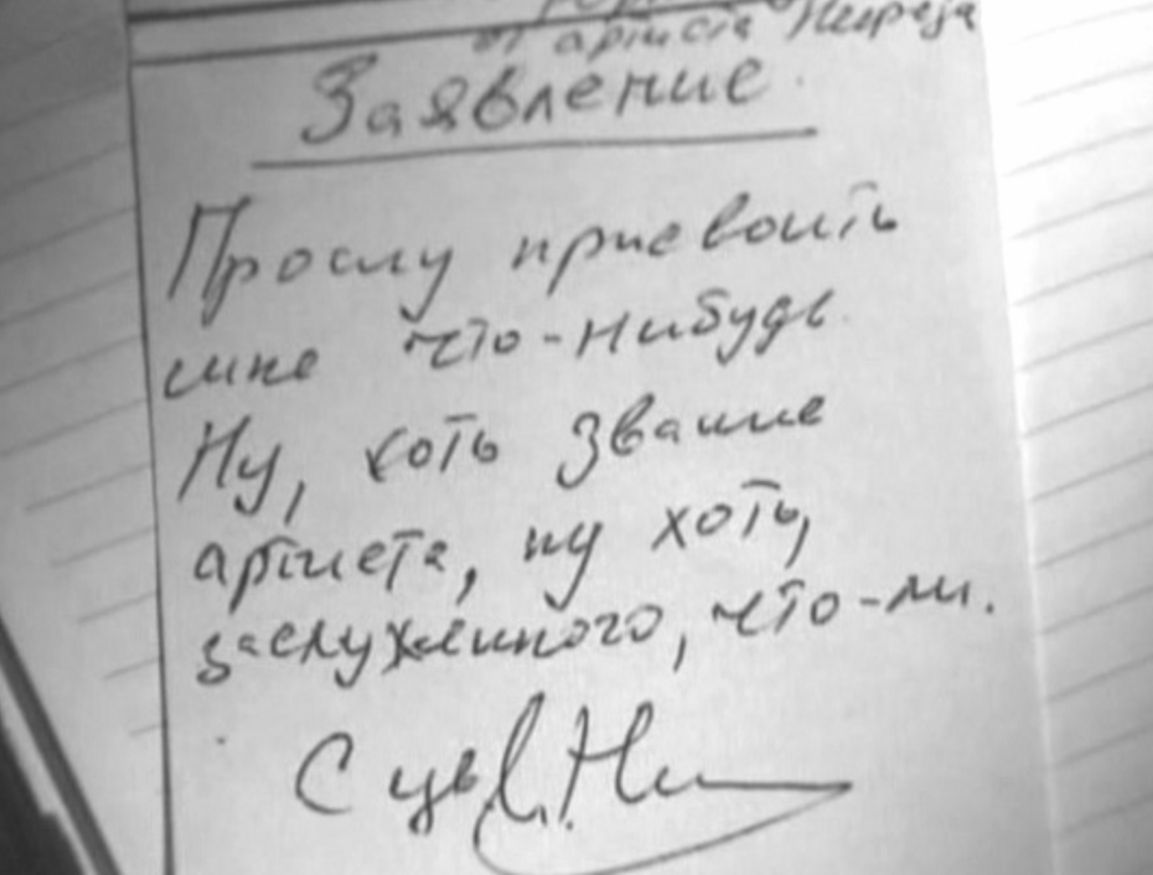 от артиста
Заявление
Прошу присвоить
мне что-нибудь
Ну, хоть звание
артиста, ну хоть,
заслуженного, что-ли.
С ув.